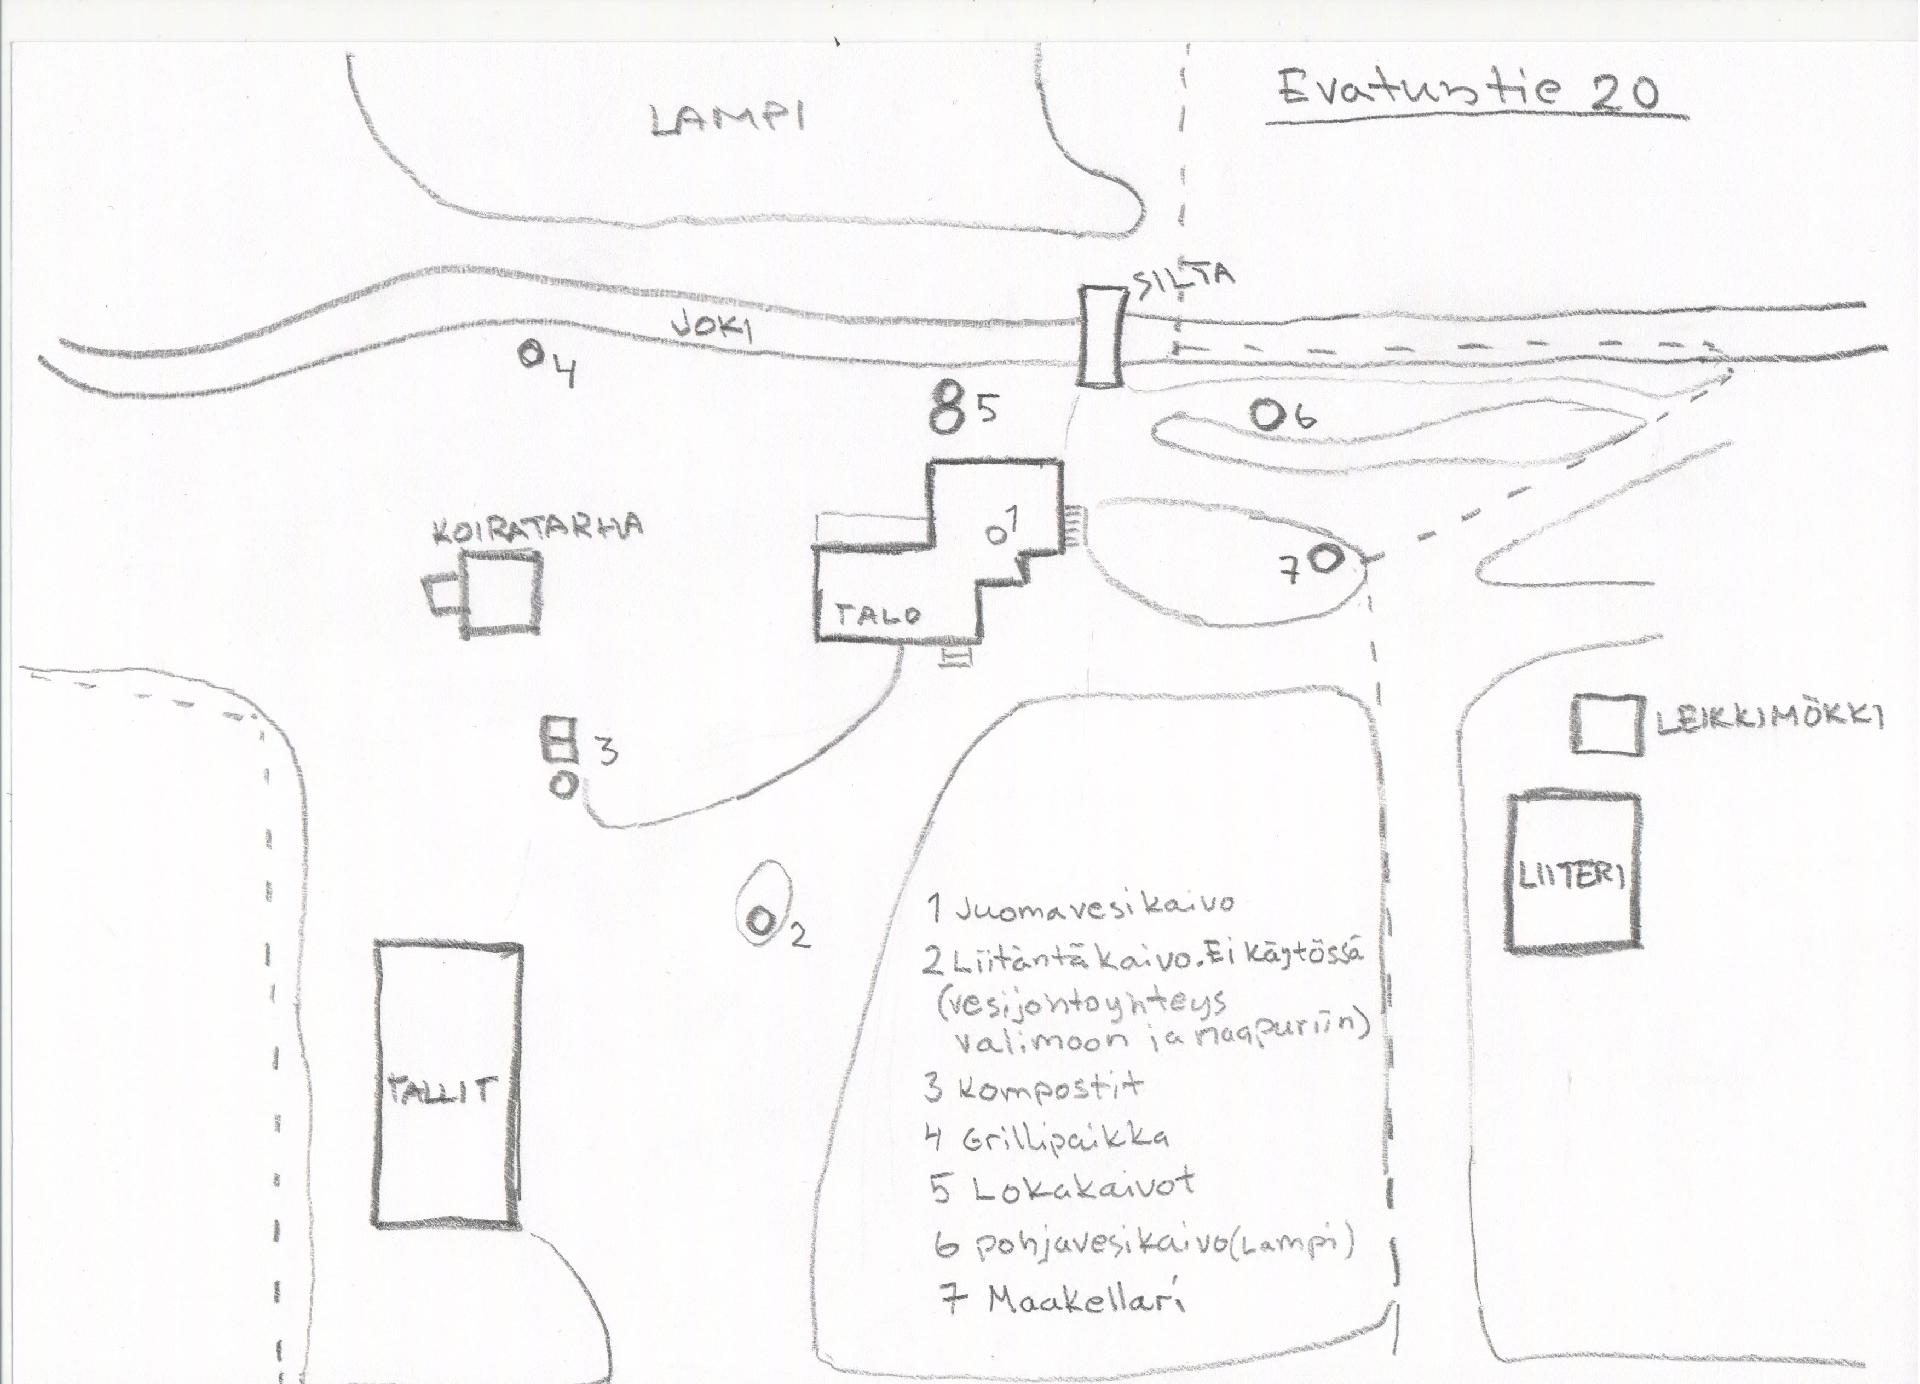 Evatustie 20
LAMPI
SILTA
JOKI
4
8 5
6
KOIRATARHA
1
7
TALO
3
LEIKKIMÖKKI
LIITERI
2
1 Juomavesikaivo
2 Liitäntäkaivo. Ei käytössä
(vesijohtoyhteys
valimoon ja naapuriin)
TALLIT
3 Kompostit
4 Grillipaikka
5 Lokakaivot
6 pohjavesikaivo (Lampi)
7 Maakellari